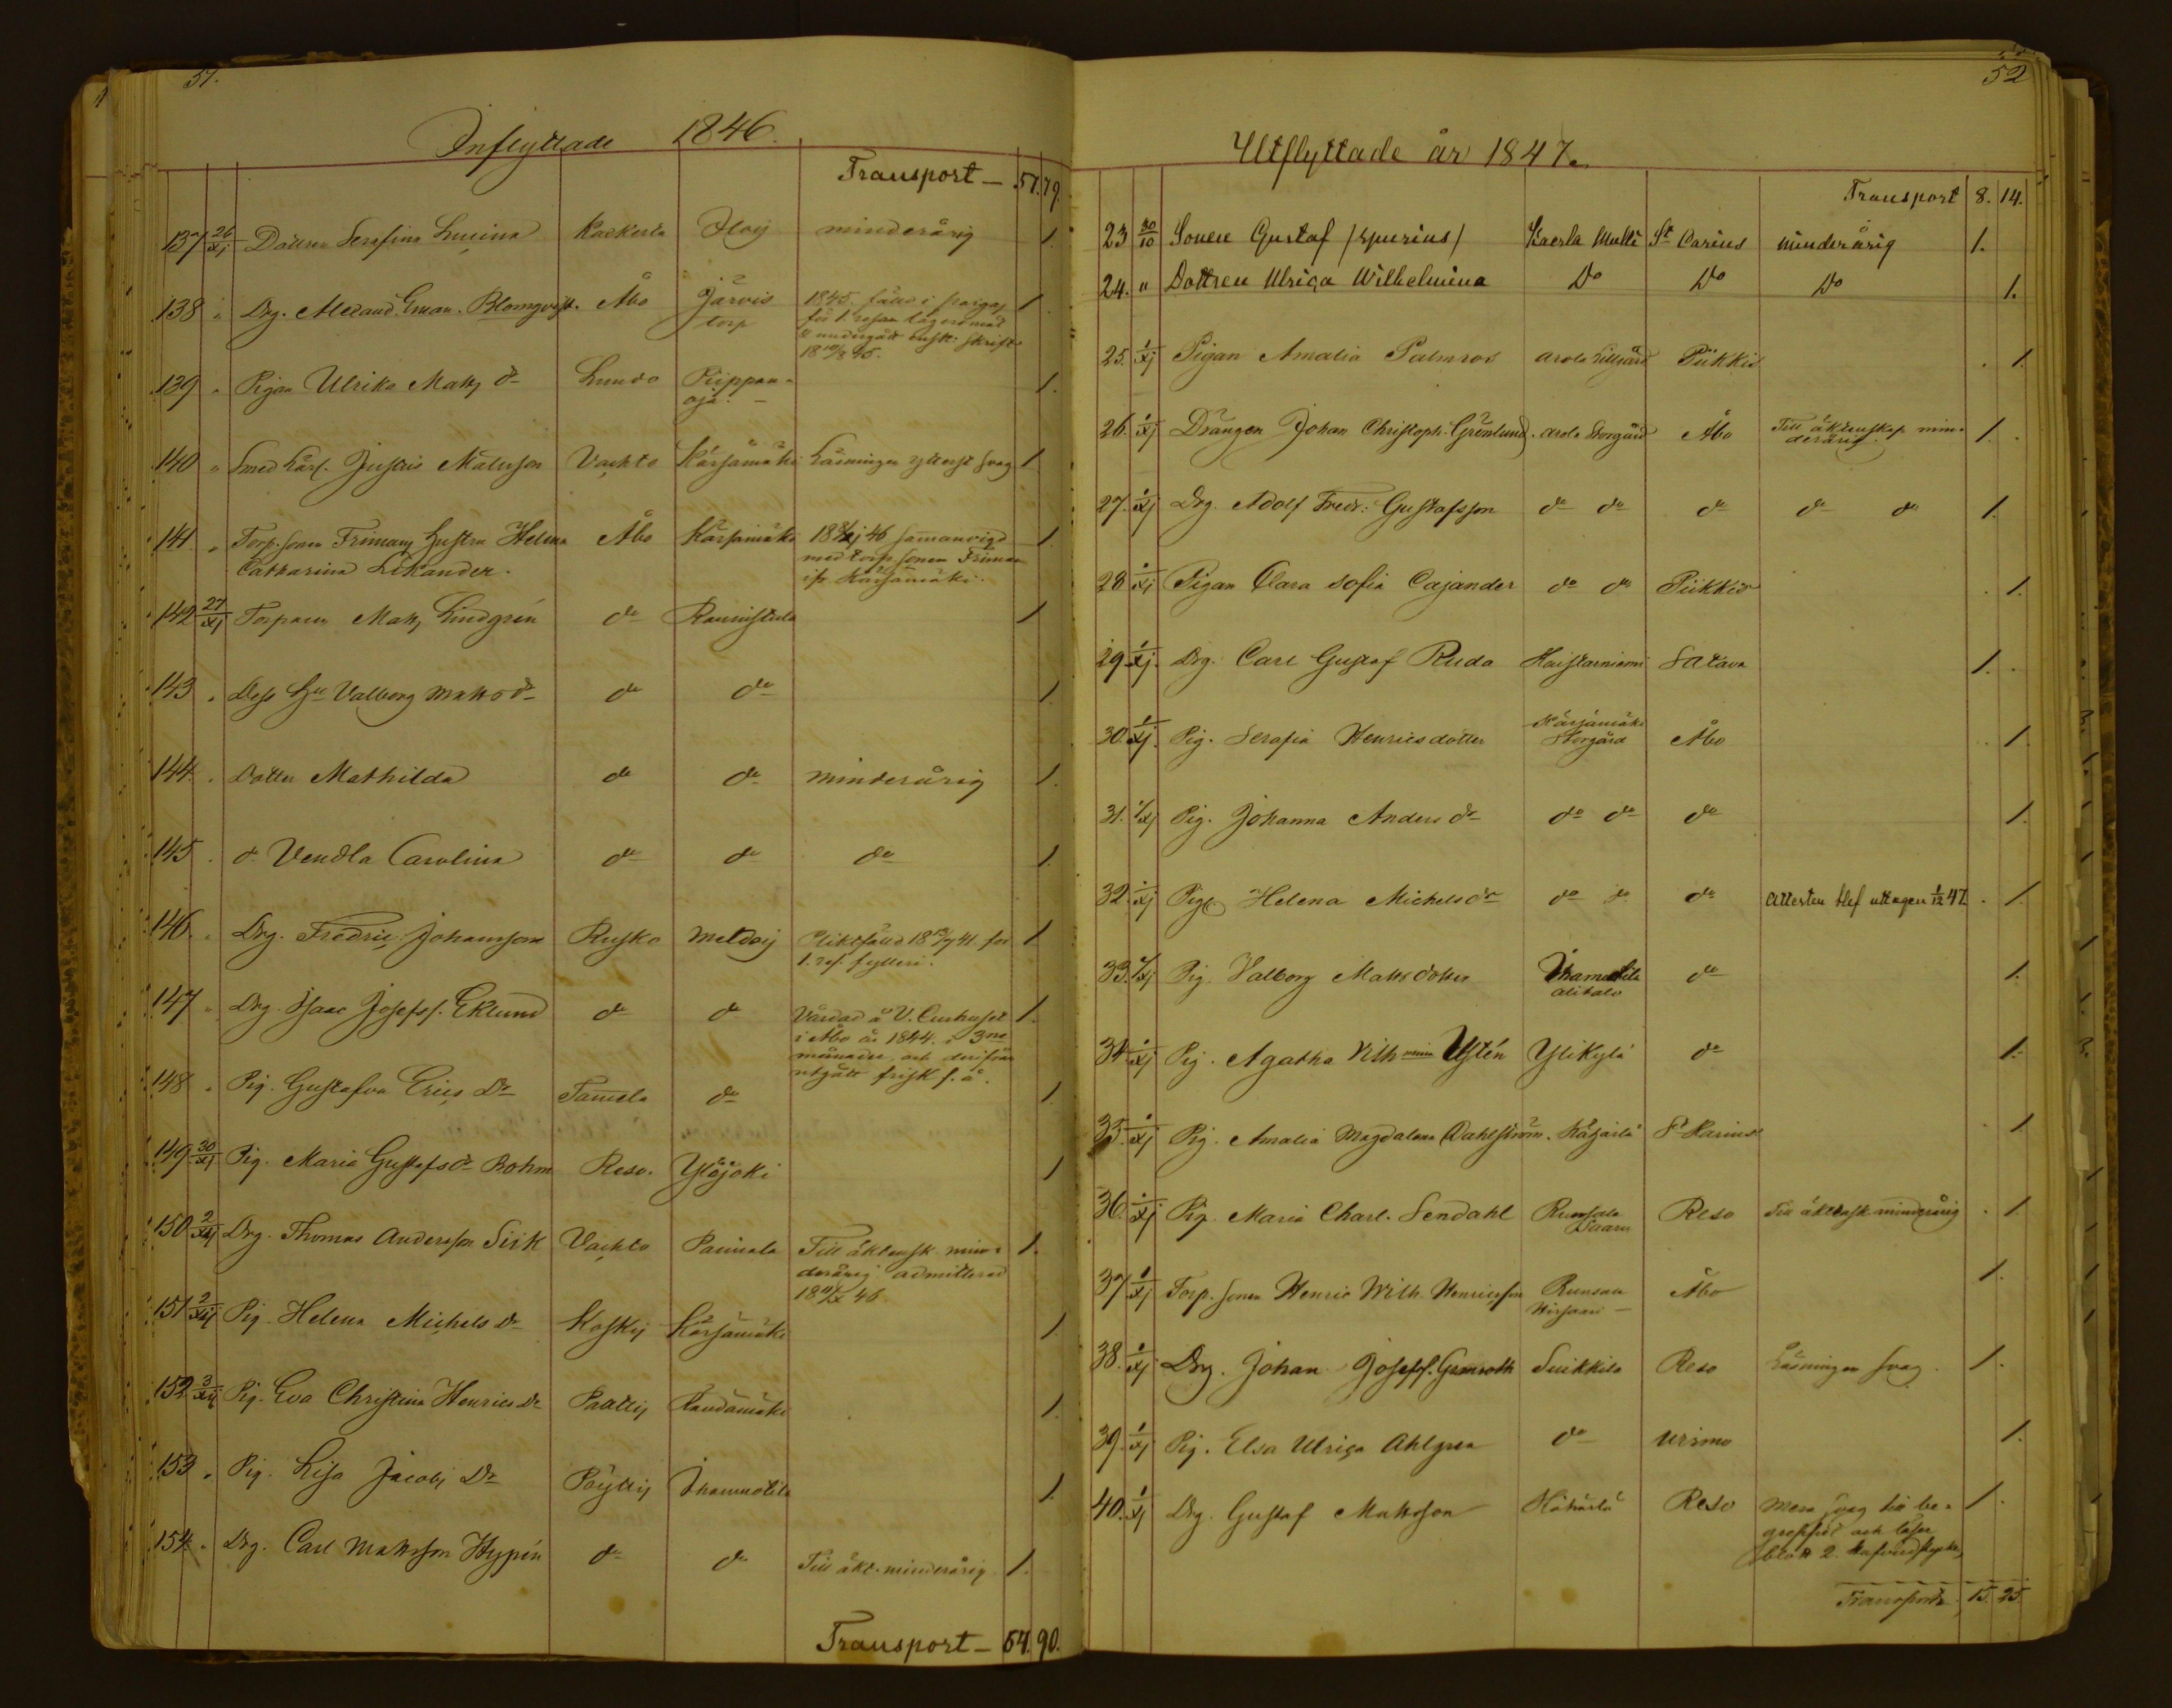 51.
Inflyttade 1846.
Transport — 57. 79.
137 26/XI Dottren Serafina Lucina Kaskerta Iloij minderårig 1.
138 " Drg. Alexand. Eman. Blomqvist. Åbo Järvis torp 1
1845.
för 1. resan lägersmål
& undergått
139 " Pigan Ulrika Matts dr Lundo Piippan-
oja. — 1.
140 " Smed Lärl. Justus Matsson Vachto Kärsämäki Läsningen ytterst svag 1
141 " Torp. sonen Frimans hustru Helena Åbo Kärsämäki 46 sammanvigd 1
Catharina Likander. med torp. sonen Friman
ifr. Kärsämäki.
142 27/XI Torparen Matts Lindgrén do Raunistula 1
143 " Dess Hu Valborg Matts dr do do 1.
144. " Dotter Mathilda do do minderårig 1.
145 " do Vendla Carolina do do do 1.
146. " Drg. Fredric Johansson Rusko Meldoij Pliktfälld 41. för 1
1. res. fylleri.
147 " Drg. Isaac Josefss. Eklund do do Vårdad å V. Curhuset 1.
i Åbo år 1844. i 3ne
månader, och derifrån
utgått frisk s. å.
148 " Pig. Gustafva Erics Dr Tamela do 1
149 30/XI Pig. Maria Gustafs dr Bohm Reso. Yläjoki 1
150 2/XII Drg. Thomas Andersson Siik Vachto Paimala Till äktensk. min- 1.
derårig admitterad
46
151 2/XII Pig. Helena Michels Dr Koskij Kärsämäki 1.
152 3/XII Pig. Eva Christina Henrics Dr Paattij Randämäki 1.
153 " Pig. Lisa Jacobs Dr Pöytij 1.
154. " Drg. Carl Mattsson Hypén do do Till äkt. minderårig 1.
Transport — 64. 90.
52
Utflyttade år 1847.
Transport 8. 14.
23 30/10 Sonen Gustaf (spurius) Kaerla Multi St Carius minderårig 1.
24. " Dottren Ulrica Wilhelmina Do Do Do 1.
25. 1/XI Pigan Amalia Palmros Arola Lillgård Piikkis 1.
26. 1/XI Drängen Johan Christoph. Grönlund. Arola Storgård Åbo Till äktenskap min- 1.
derårig.
27. 1/XI Drg. Adolf Fredr: Gustafsson do do do do do 1.
28 1/XI Pigan Clara Sofia Cajander do do Piikkis 1.
29. 1/XI Drg. Carl Gustaf Ruda Haistarniemi Satava 1.
30. 1/XI Pig. Serafia Henricsdotter Kärsämäki
Storgård Åbo 1.
31. 1/XI Pig. Johanna Anders dr do do do 1.
32. 1/XI Pig. Helena Michels dr do do do Attesten blef uttagen 1/12 47. 1.
33. 1/XI Pig. Valborg Mattsdotter
Alitalo do 1.
34. 1/XI Pig. Agatha Vilhmina Ystén Ylikylä do 1.
35. 1/XI Pig. Amalia Magdalena Dahlström. St Karins 1
36. 1/XI Pig. Maria Charl. Sendahl Runsala
Saaru Reso Till äktensk. minderårig 1
37. 1/XI Torp. sonen Henric Wilh. Henricsson Runsala
Åbo 1.
38. 1/XI Drg. Johan Josefss. Granroth Suikkila Reso Läsningen svag. 1.
39. 1/XI Pig. Elsa Ulrica Ahlgren do Urimo 1.
40. 1/XI Drg. Gustaf Mattsson Reso Mera svag till be- 1.
greppet och läser
blott 2. hufvudstycken
Transport. 15. 25.